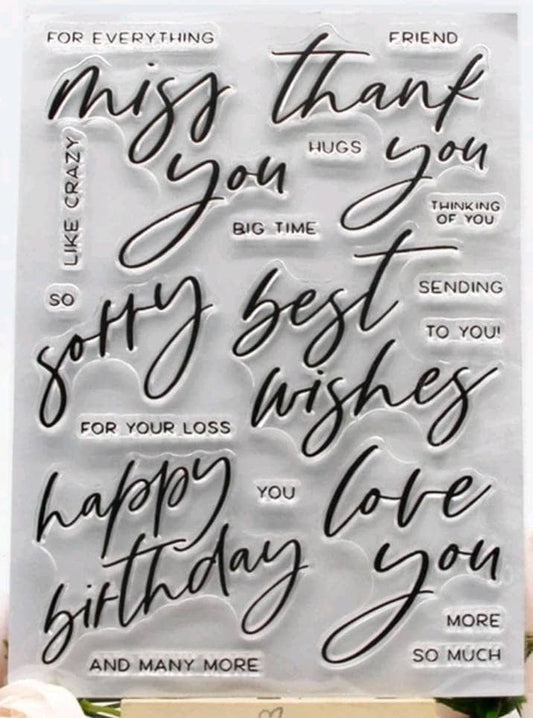 FOR EVERYTHING
FRIEND
miss
you
thank
you
HUGS
LIKE CRAZY
BIG TIME
THINKING
OF YOU
SO
sorry
best
wishes
SENDING
TO YOU!
FOR YOUR LOSS
happy
birthday
YOU
love
you
MORE
AND MANY MORE
SO MUCH